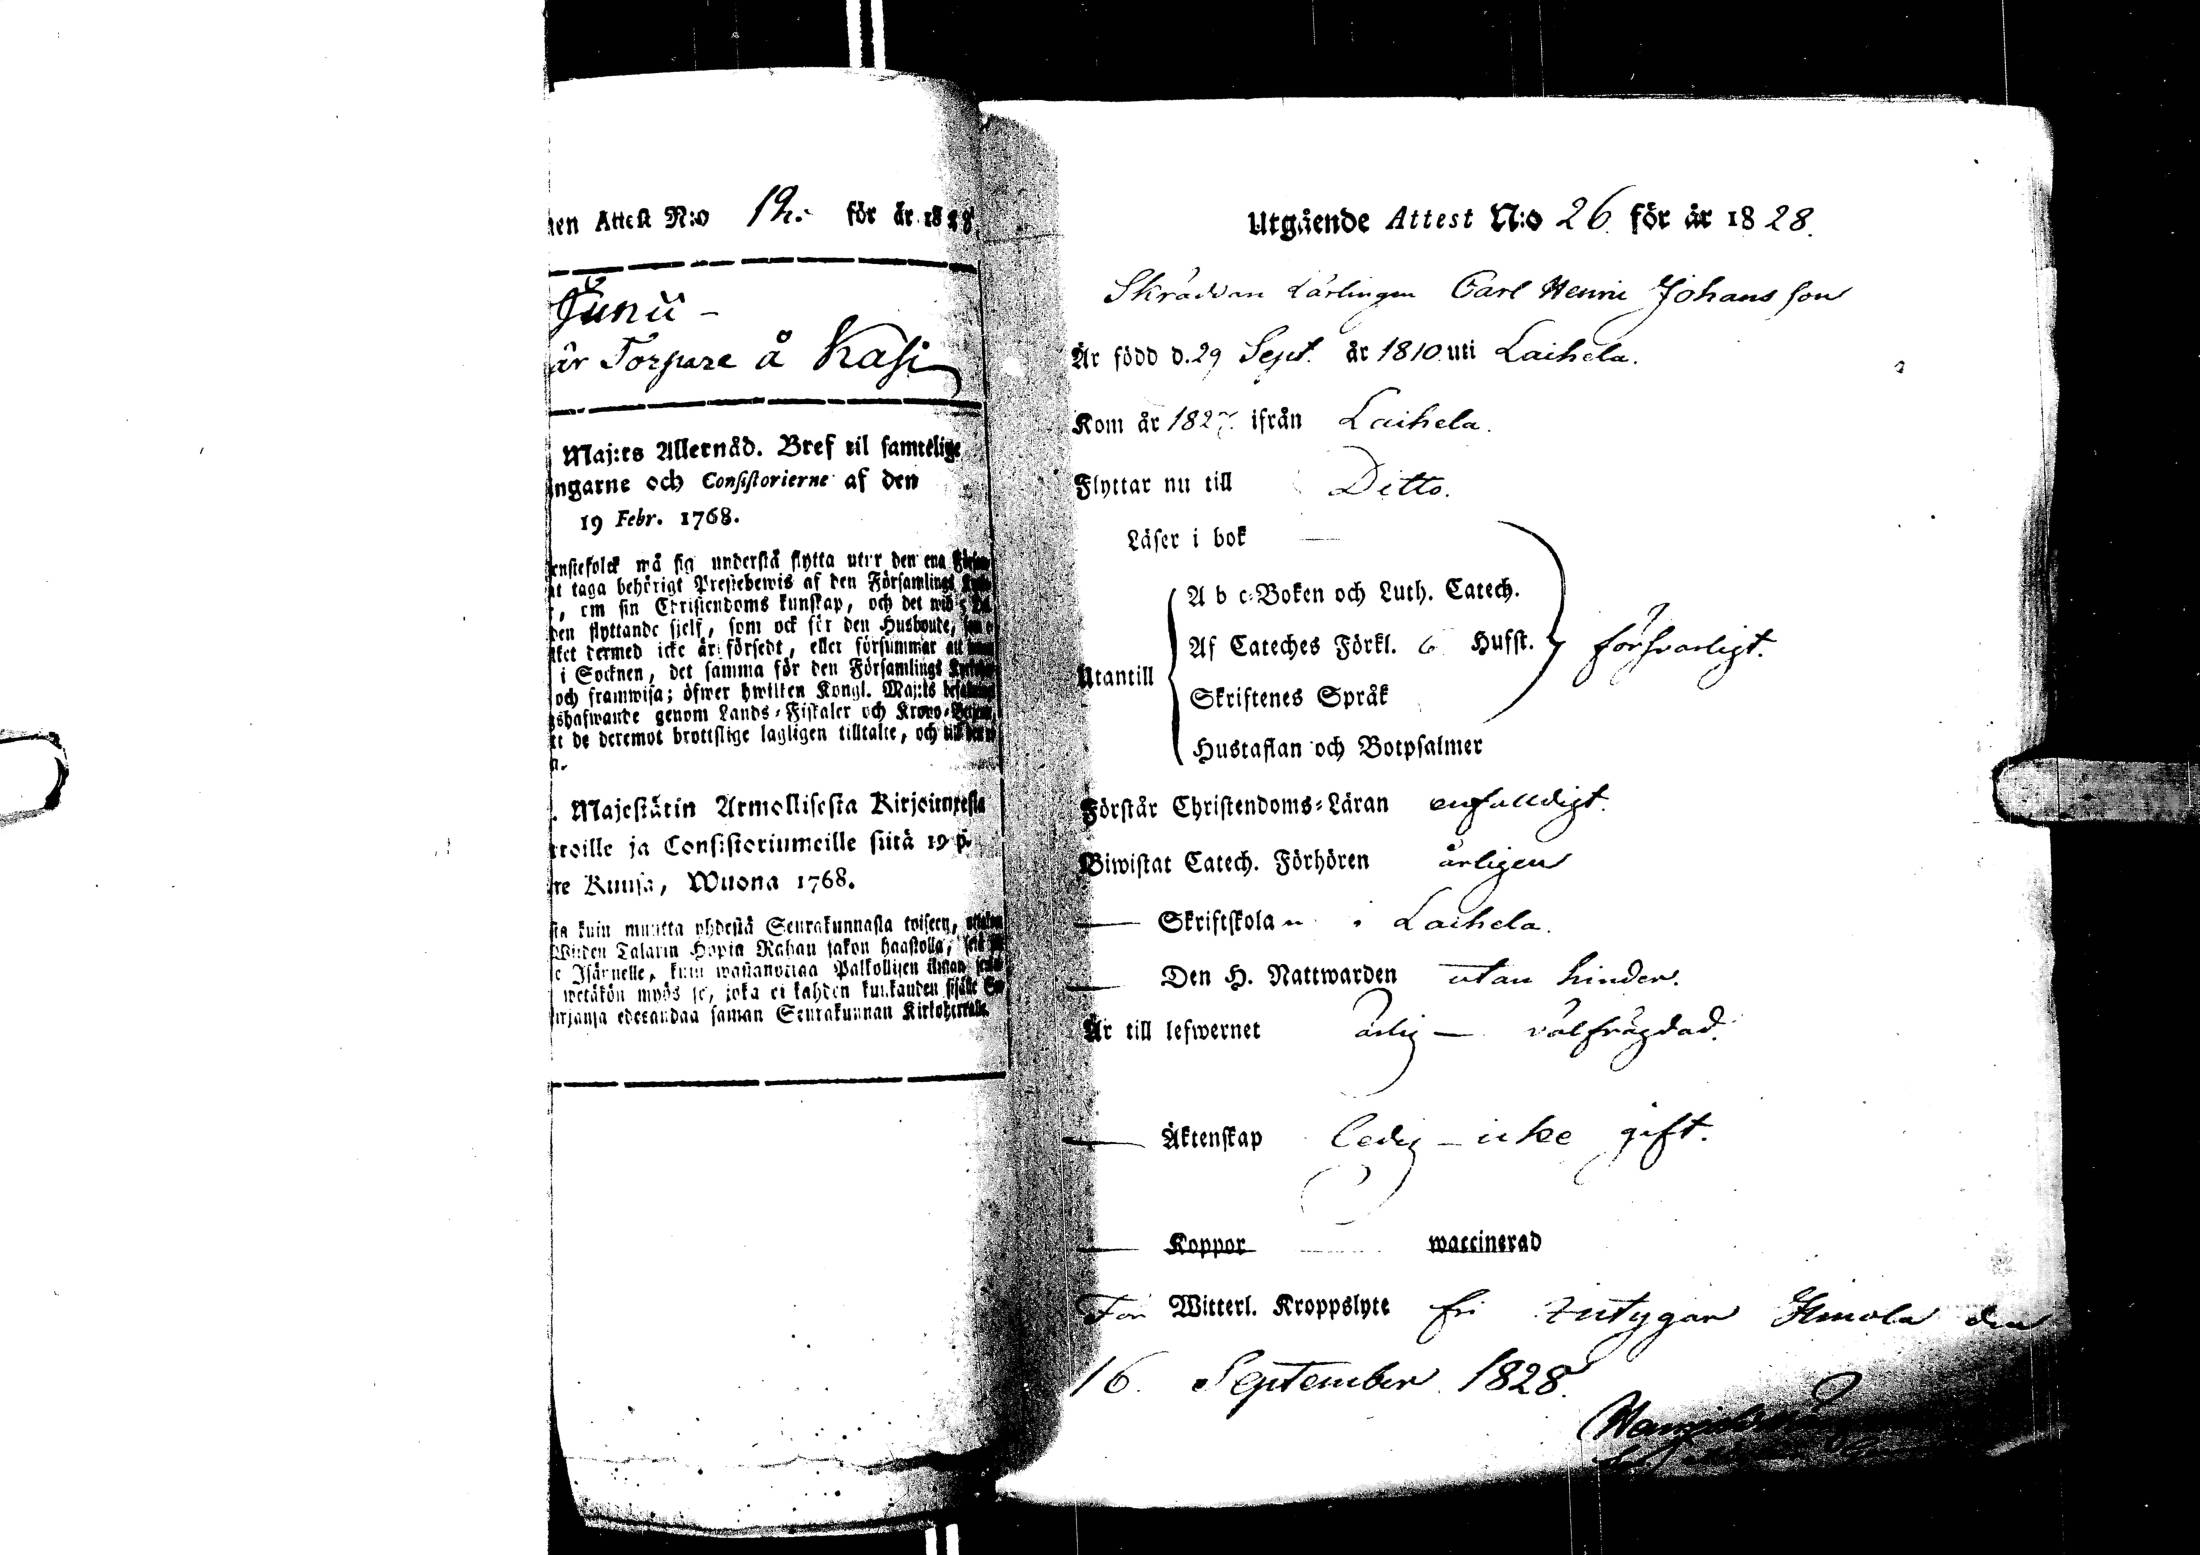 Attest N:o 12. för år 1828
Junii -
är Torpare å Kasi
Maj:ts Allernåd. Bref til samtelige
ngarne och Consistorierne af den
19 Febr. 1768.
enstefolck må sig understå flytta utur den ena
at taga behörigt Prestebewis af den Församlings
, om sin Christendoms kunskap, och det wid
den flyttande sjelf, som ock för den Husbonde,
ket dermed icke är försedt, eller försummar att
i Socknen, det samma för den Församlings
och framwisa; öfwer hwilken Kongl. Maj:ts
gshafwande genom Lands-Fiskaler och Krono-
tt de deremot brottslige lagligen tilltalte, och
. Majestätin Armollisesta Kirjoituxesta
roille ja Consistoriumeille siitä 19 p.
re Kuusa, Wuona 1768.
sta kuin muutta yhdestä Seurakunnasta toiseen,
Wijden Talarin Hopia Rahan sakon haastolla,
Isännelle, kuin wastanottaa Palkollisen ilman
wetäkön myös se, joka ei kahden kuukauden sisälle
irjansa edesandaa saman Seurakunnan Kirkoherralle.
Utgående Attest N:o 26. för år 1828.
Skräddare Lärlingen Carl Henric Johansson
Är född d. 29 Sept. år 1810. uti Laihela.
Kom år 1827. ifrån Laihela.
Flyttar nu till Ditto.
Läser i bok —
A b c-Boken och Luth. Catech.
Af Cateches Förkl. 6 Hufst. försvarligt.
Utantill
Skriftenes Språk
Hustaflan och Botpsalmer
Förstår Christendoms-Läran enfalldigt.
Biwistat Catech. Förhören årligen
— Skriftskolan i Laihela.
— Den H. Nattwarden utan hinder.
Är till lefwernet ärlig — välfrägdad.
— Äktenskap ledig — icke gift.
— Koppor waccinerad
För Witterl. Kroppslyte fri intygar Ilmola den
16. September 1828.